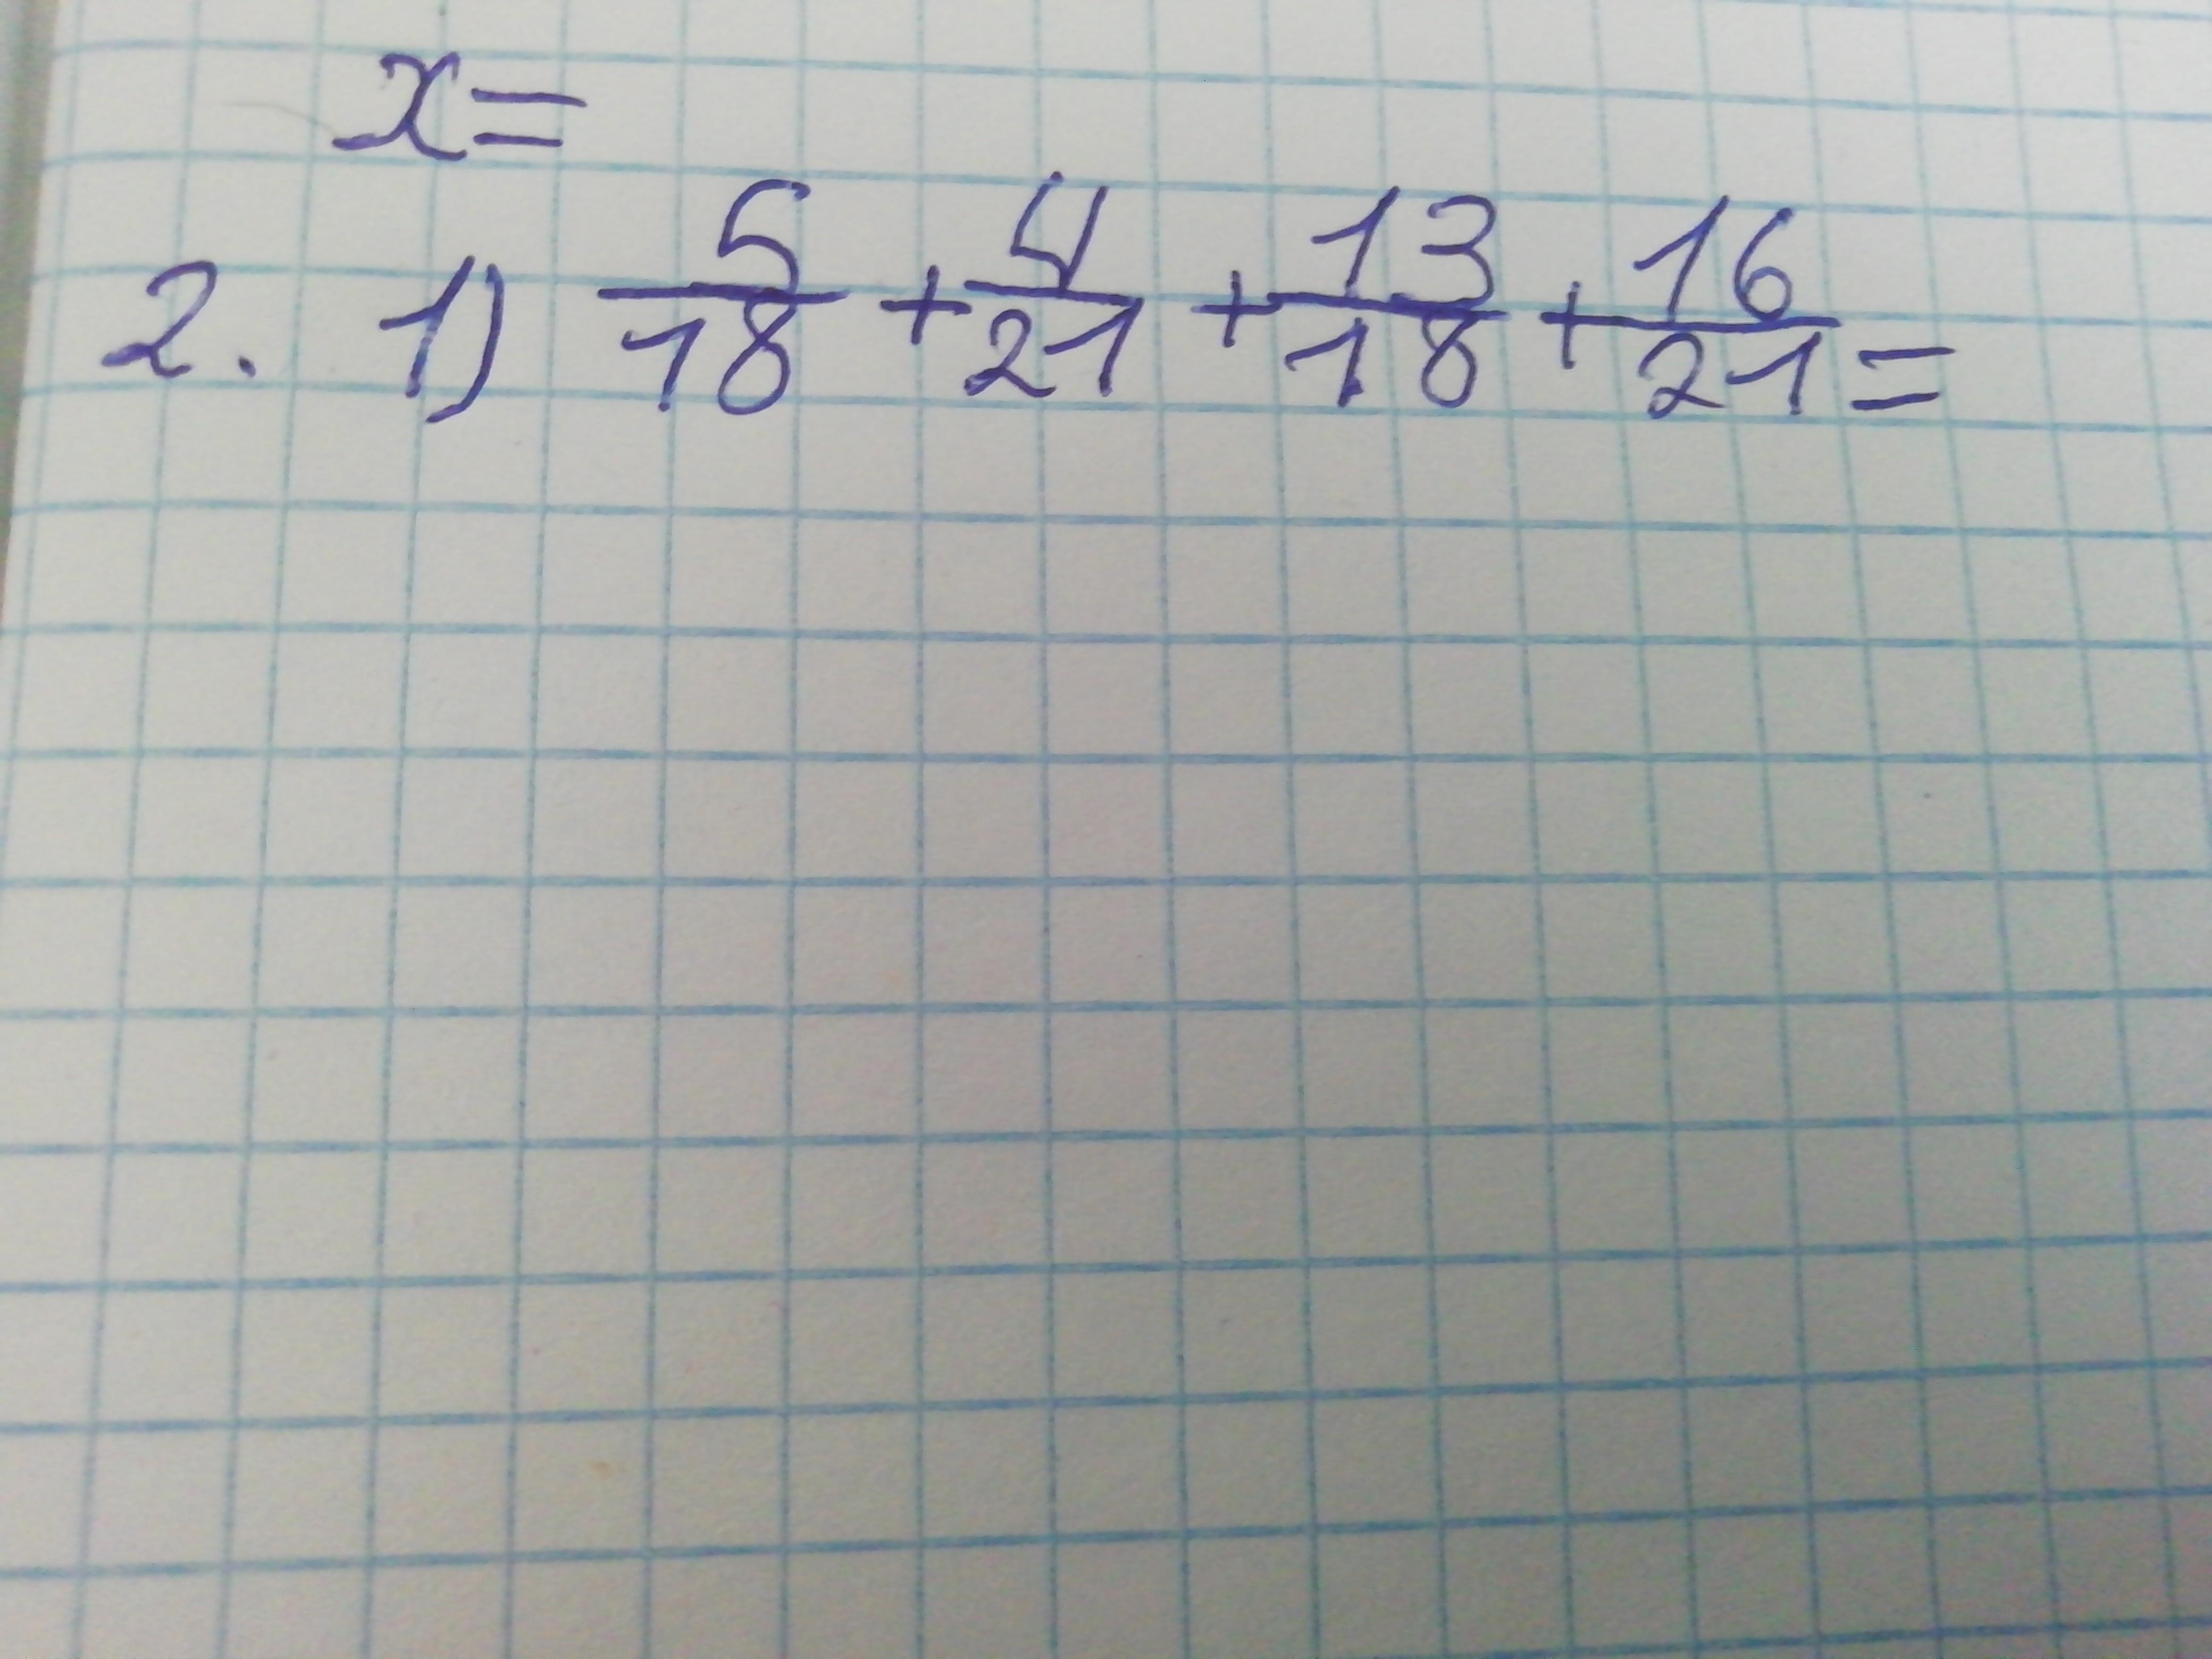 x=
2. 1) 5/18 + 4/21 + 13/18 + 16/21 =